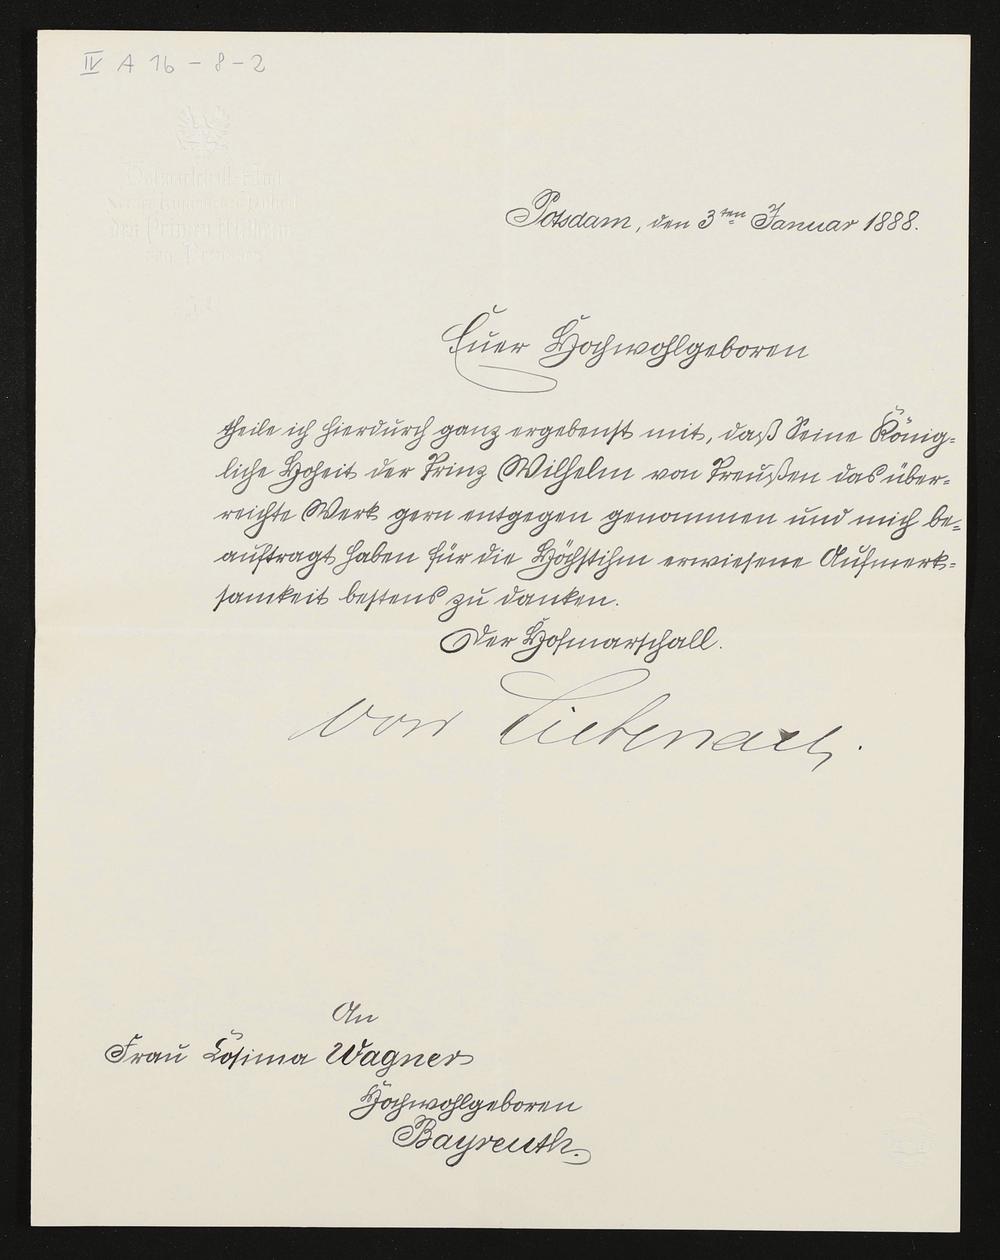 IV A 16 - 8 - 2
Hofmarschall-Amt
des Prinzen Wilhelm
von Preussen
Potsdam, den 3ten Januar 1888.
Euer Hochwohlgeboren
theile ich hierdurch ganz ergebenst mit, daß Seine König-
liche Hoheit der Prinz Wilhelm von Preußen das über-
reichte Werk gern entgegen genommen und mich be-
auftragt haben für die Höchstihm erwiesene Aufmerk-
samkeit bestens zu danken.
Der Hofmarschall.
von Liebenau.
An
Frau Cosima Wagner
Hochwohlgeboren
Bayreuth.